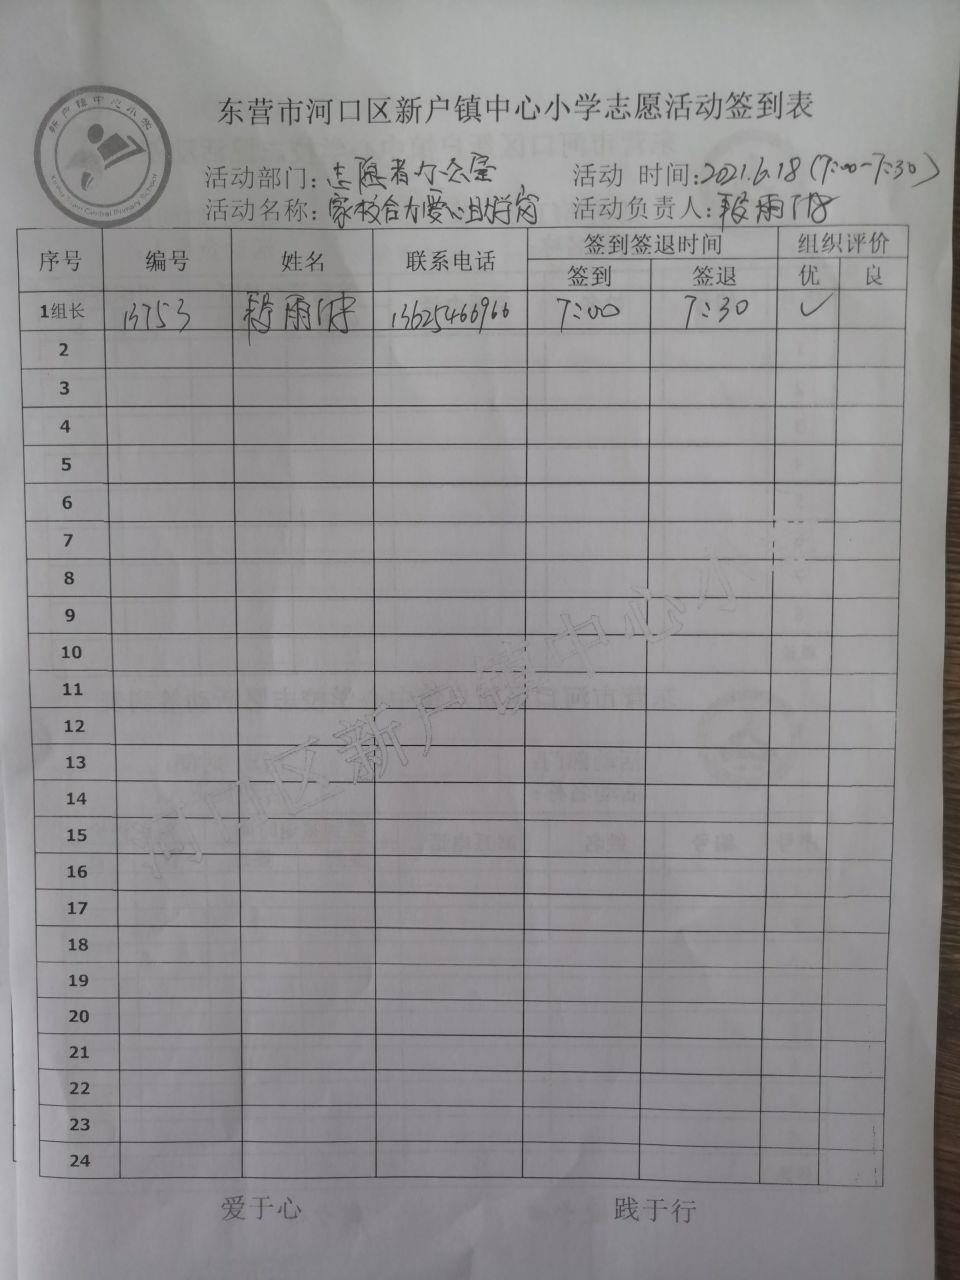 新户镇中心小学
Xinhu Town Central Primary School
东营市河口区新户镇中心小学志愿活动签到表
活动部门：志愿者办公室 活动 时间：2021.6.18（7:00-7:30）
活动名称：家校合力爱心助学岗 活动负责人：段雨
序号 编号 姓名 联系电话 签到签退时间 组织评价
签到 签退 优 良
1组长 13753 段雨 13625466966 7:00 7:30 ✓
2
3
4
5
6
7
8
9
10
11
12
13
14
15
16
17
18
19
20
21
22
23
24
河口区新户镇中心小学
爱于心 践于行